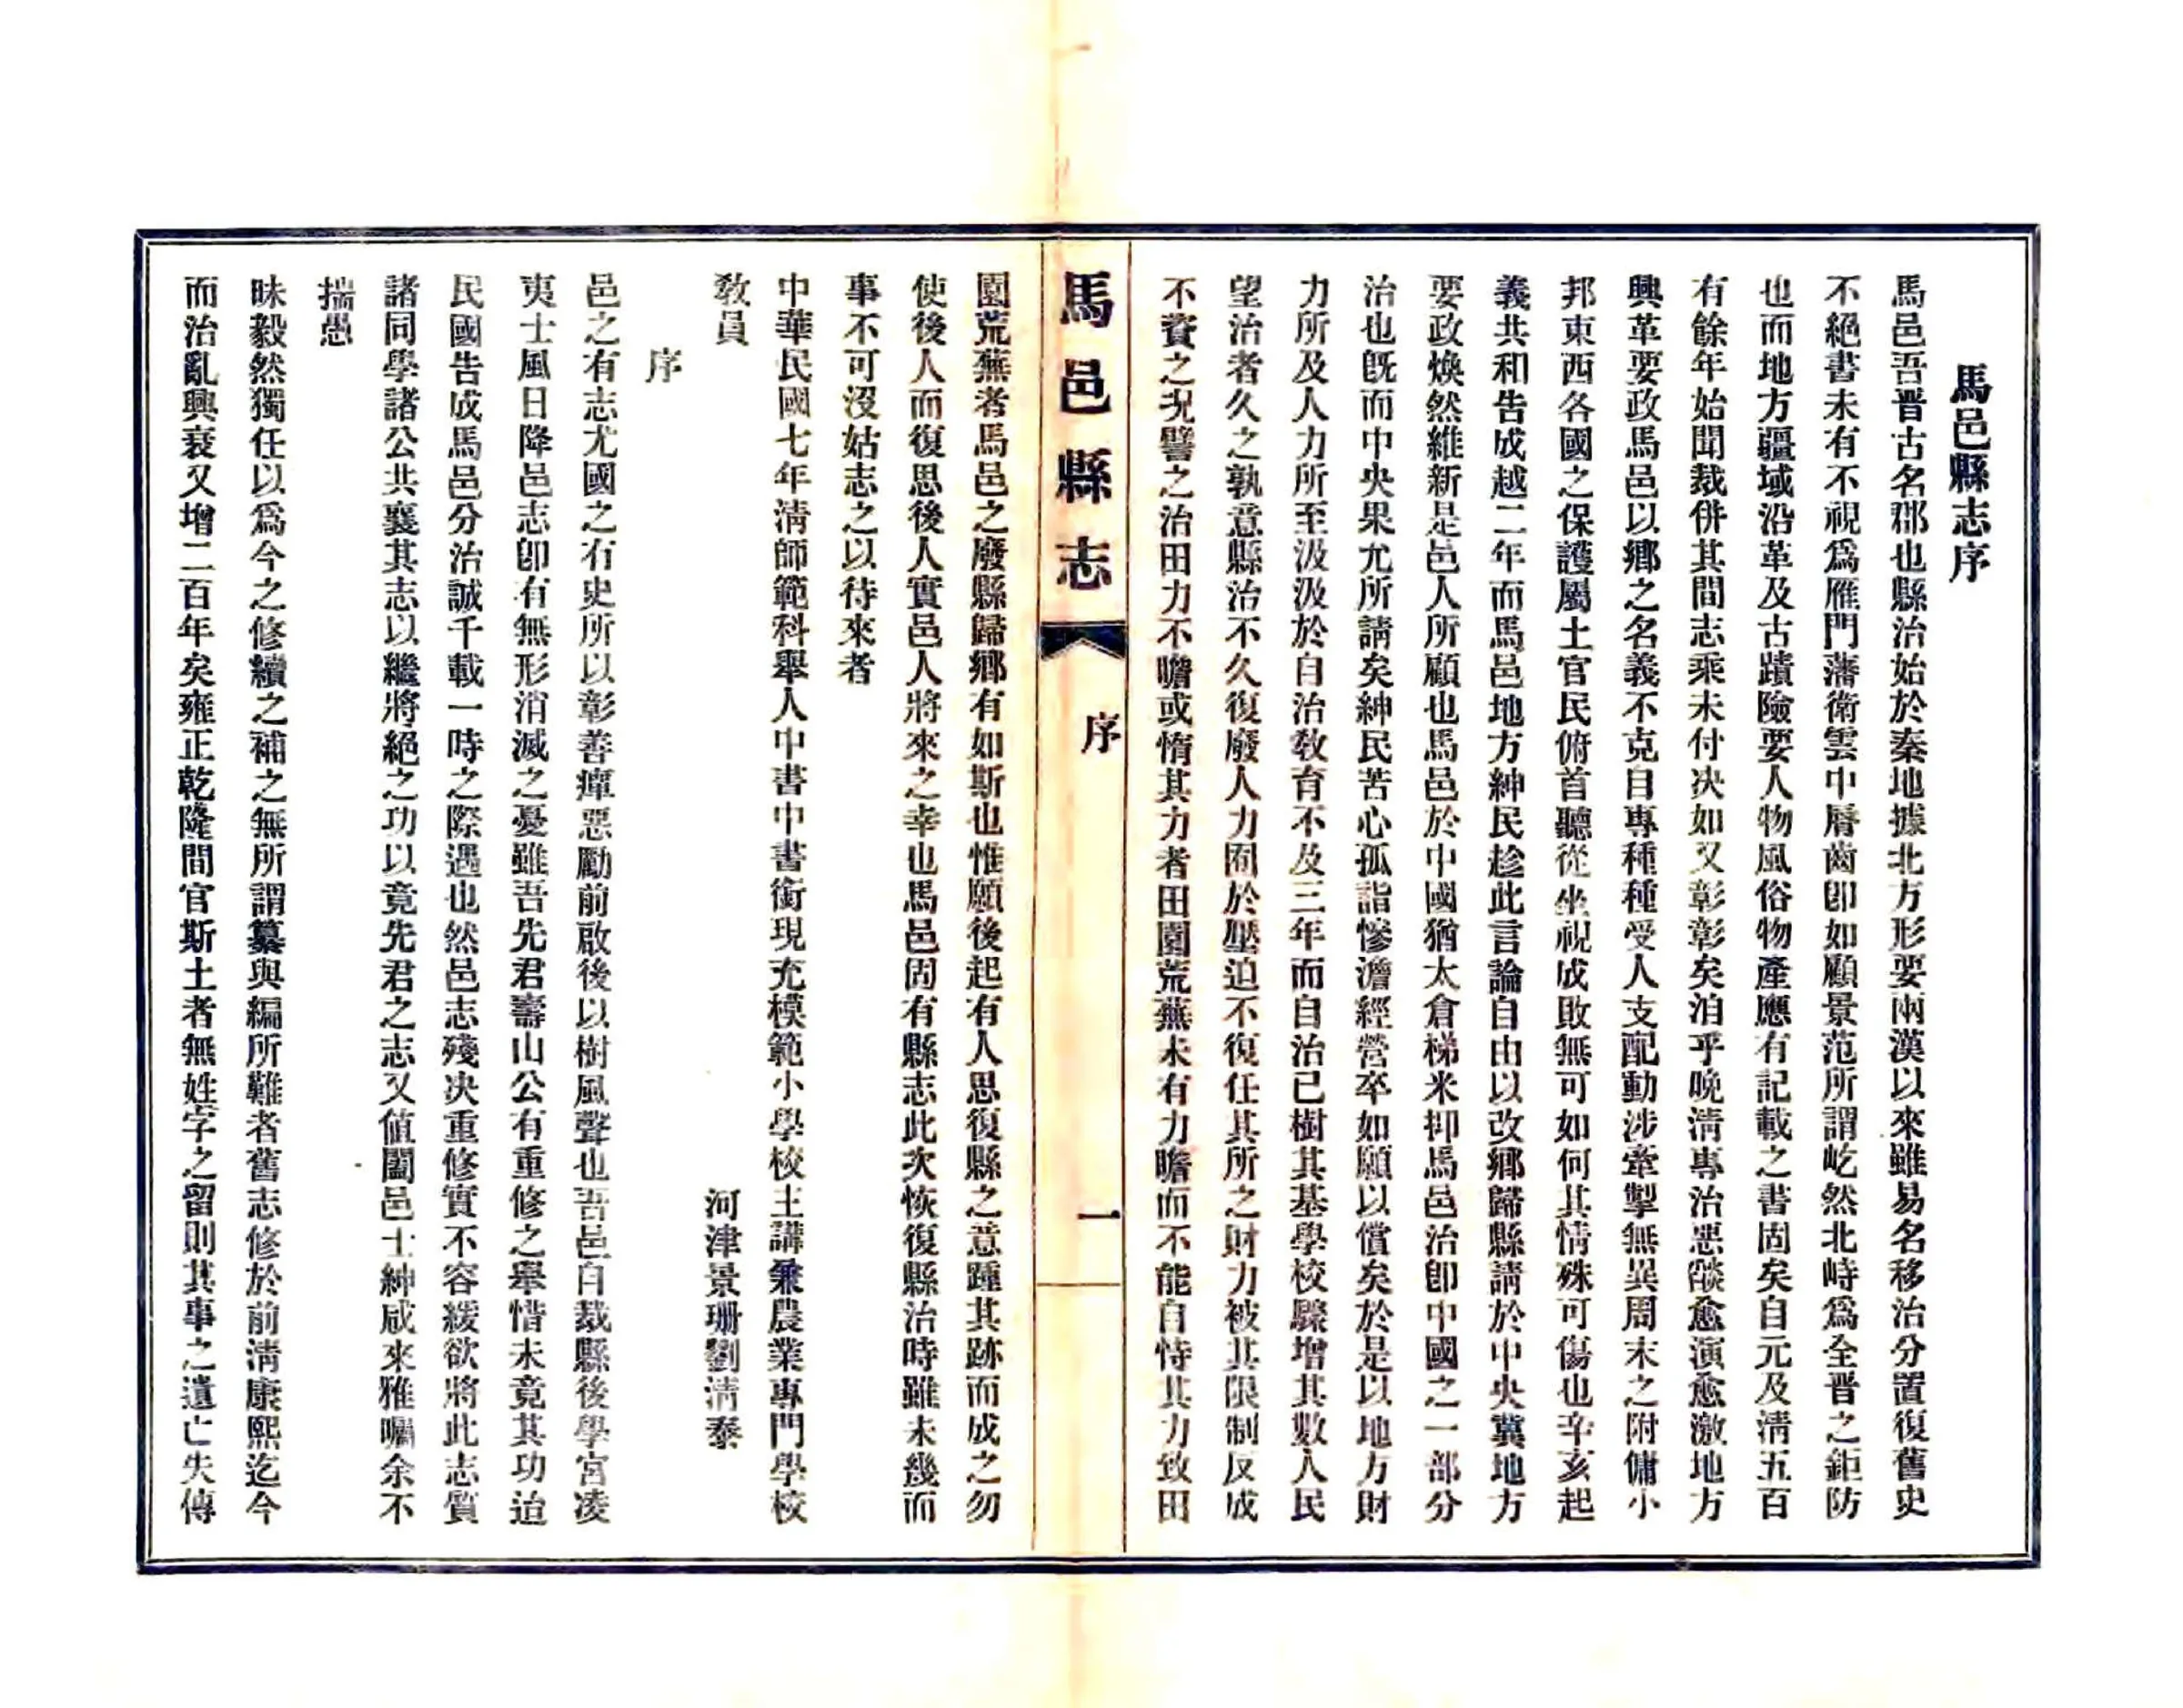 馬邑縣志序
馬邑吾晋古名郡也縣治始於秦地據北方形要兩漢以來雖易名移治分置復舊史
不絕書未有不視爲雁門藩衛雲中脣齒卽如顧景范所謂屹然北峙爲全晋之鉅防
也而地方疆域沿革及古蹟險要人物風俗物產應有記載之書固矣自元及淸五百
有餘年始聞裁併其間志乘未付决如又彰彰矣洎乎晚淸專治惡燄愈演愈激地方
興革要政馬邑以鄉之名義不克自專種種受人支配動涉牽掣無異周末之附傭小
邦東西各國之保護屬土官民俯首聽從坐視成敗無可如何其情殊可傷也辛亥起
義共和告成越二年而馬邑地方紳民趁此言論自由以改鄉歸縣請於中央冀地方
要政煥然維新是邑人所願也馬邑於中國猶太倉梯米抑馬邑治卽中國之一部分
治也旣而中央果允所請矣紳民苦心孤詣慘澹經營卒如願以償矣於是以地方財
力所及人力所至汲汲於自治敎育不及三年而自治已樹其基學校驟增其數人民
望治者久之孰意縣治不久復廢人力囿於壓迫不復任其所之財力被其限制反成
不貲之况譬之治田力不瞻或惰其力者田園荒蕪未有力瞻而不能自恃其力致田
馬邑縣志
序
一
園荒蕪者馬邑之廢縣歸鄉有如斯也惟願後起有人思復縣之意踵其跡而成之勿
使後人而復思後人實邑人將來之幸也馬邑固有縣志此次恢復縣治時雖未幾而
事不可沒姑志之以待來者
中華民國七年淸師範科舉人中書中書銜現充模範小學校主講兼農業專門學校
敎員
河津景珊劉淸泰
序
邑之有志尤國之有史所以彰善癉惡勵前啟後以樹風聲也吾邑自裁縣後學宮凌
夷士風日降邑志卽有無形消滅之憂雖吾先君壽山公有重修之舉惜未竟其功迨
民國告成馬邑分治誠千載一時之際遇也然邑志殘决重修實不容緩欲將此志質
諸同學諸公共襄其志以繼將絕之功以竟先君之志又値闔邑士紳咸來雅囑余不
揣愚
昧毅然獨任以爲今之修續之補之無所謂纂與編所難者舊志修於前淸康熙迄今
而治亂興衰又增二百年矣雍正乾隆間官斯土者無姓字之留則其事之遺亡失傳